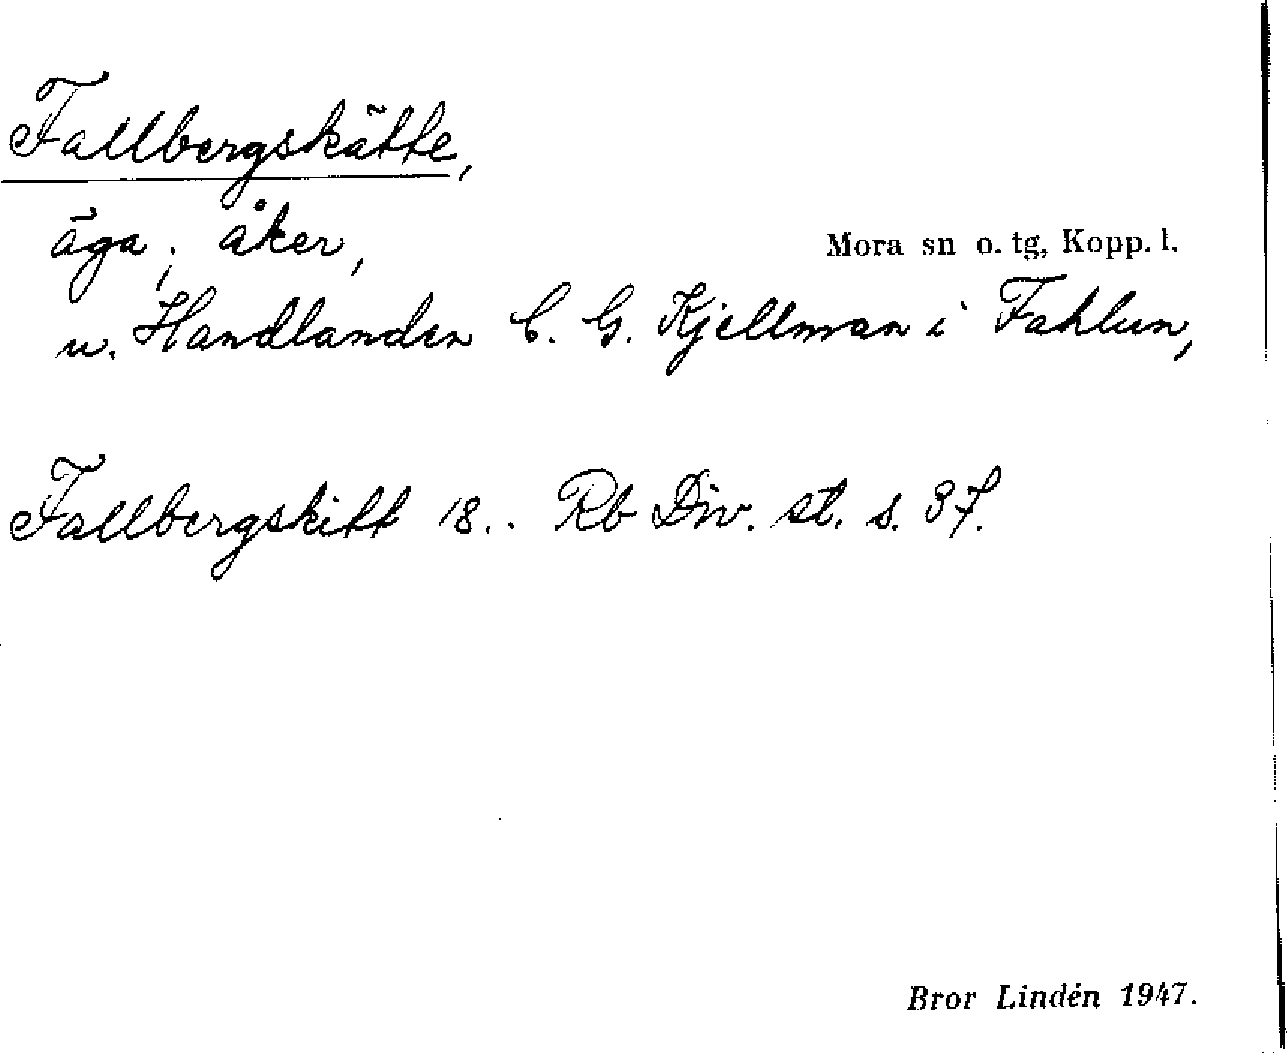 Fallbergskätte,
äga; åker,
Mora sn o. tg, Kopp. l.
u. Handlanden C. G. Kjellman i Fahlun,
Fallbergskitt 18.. Rb Div. st. s. 37.
Bror Lindén 1947.